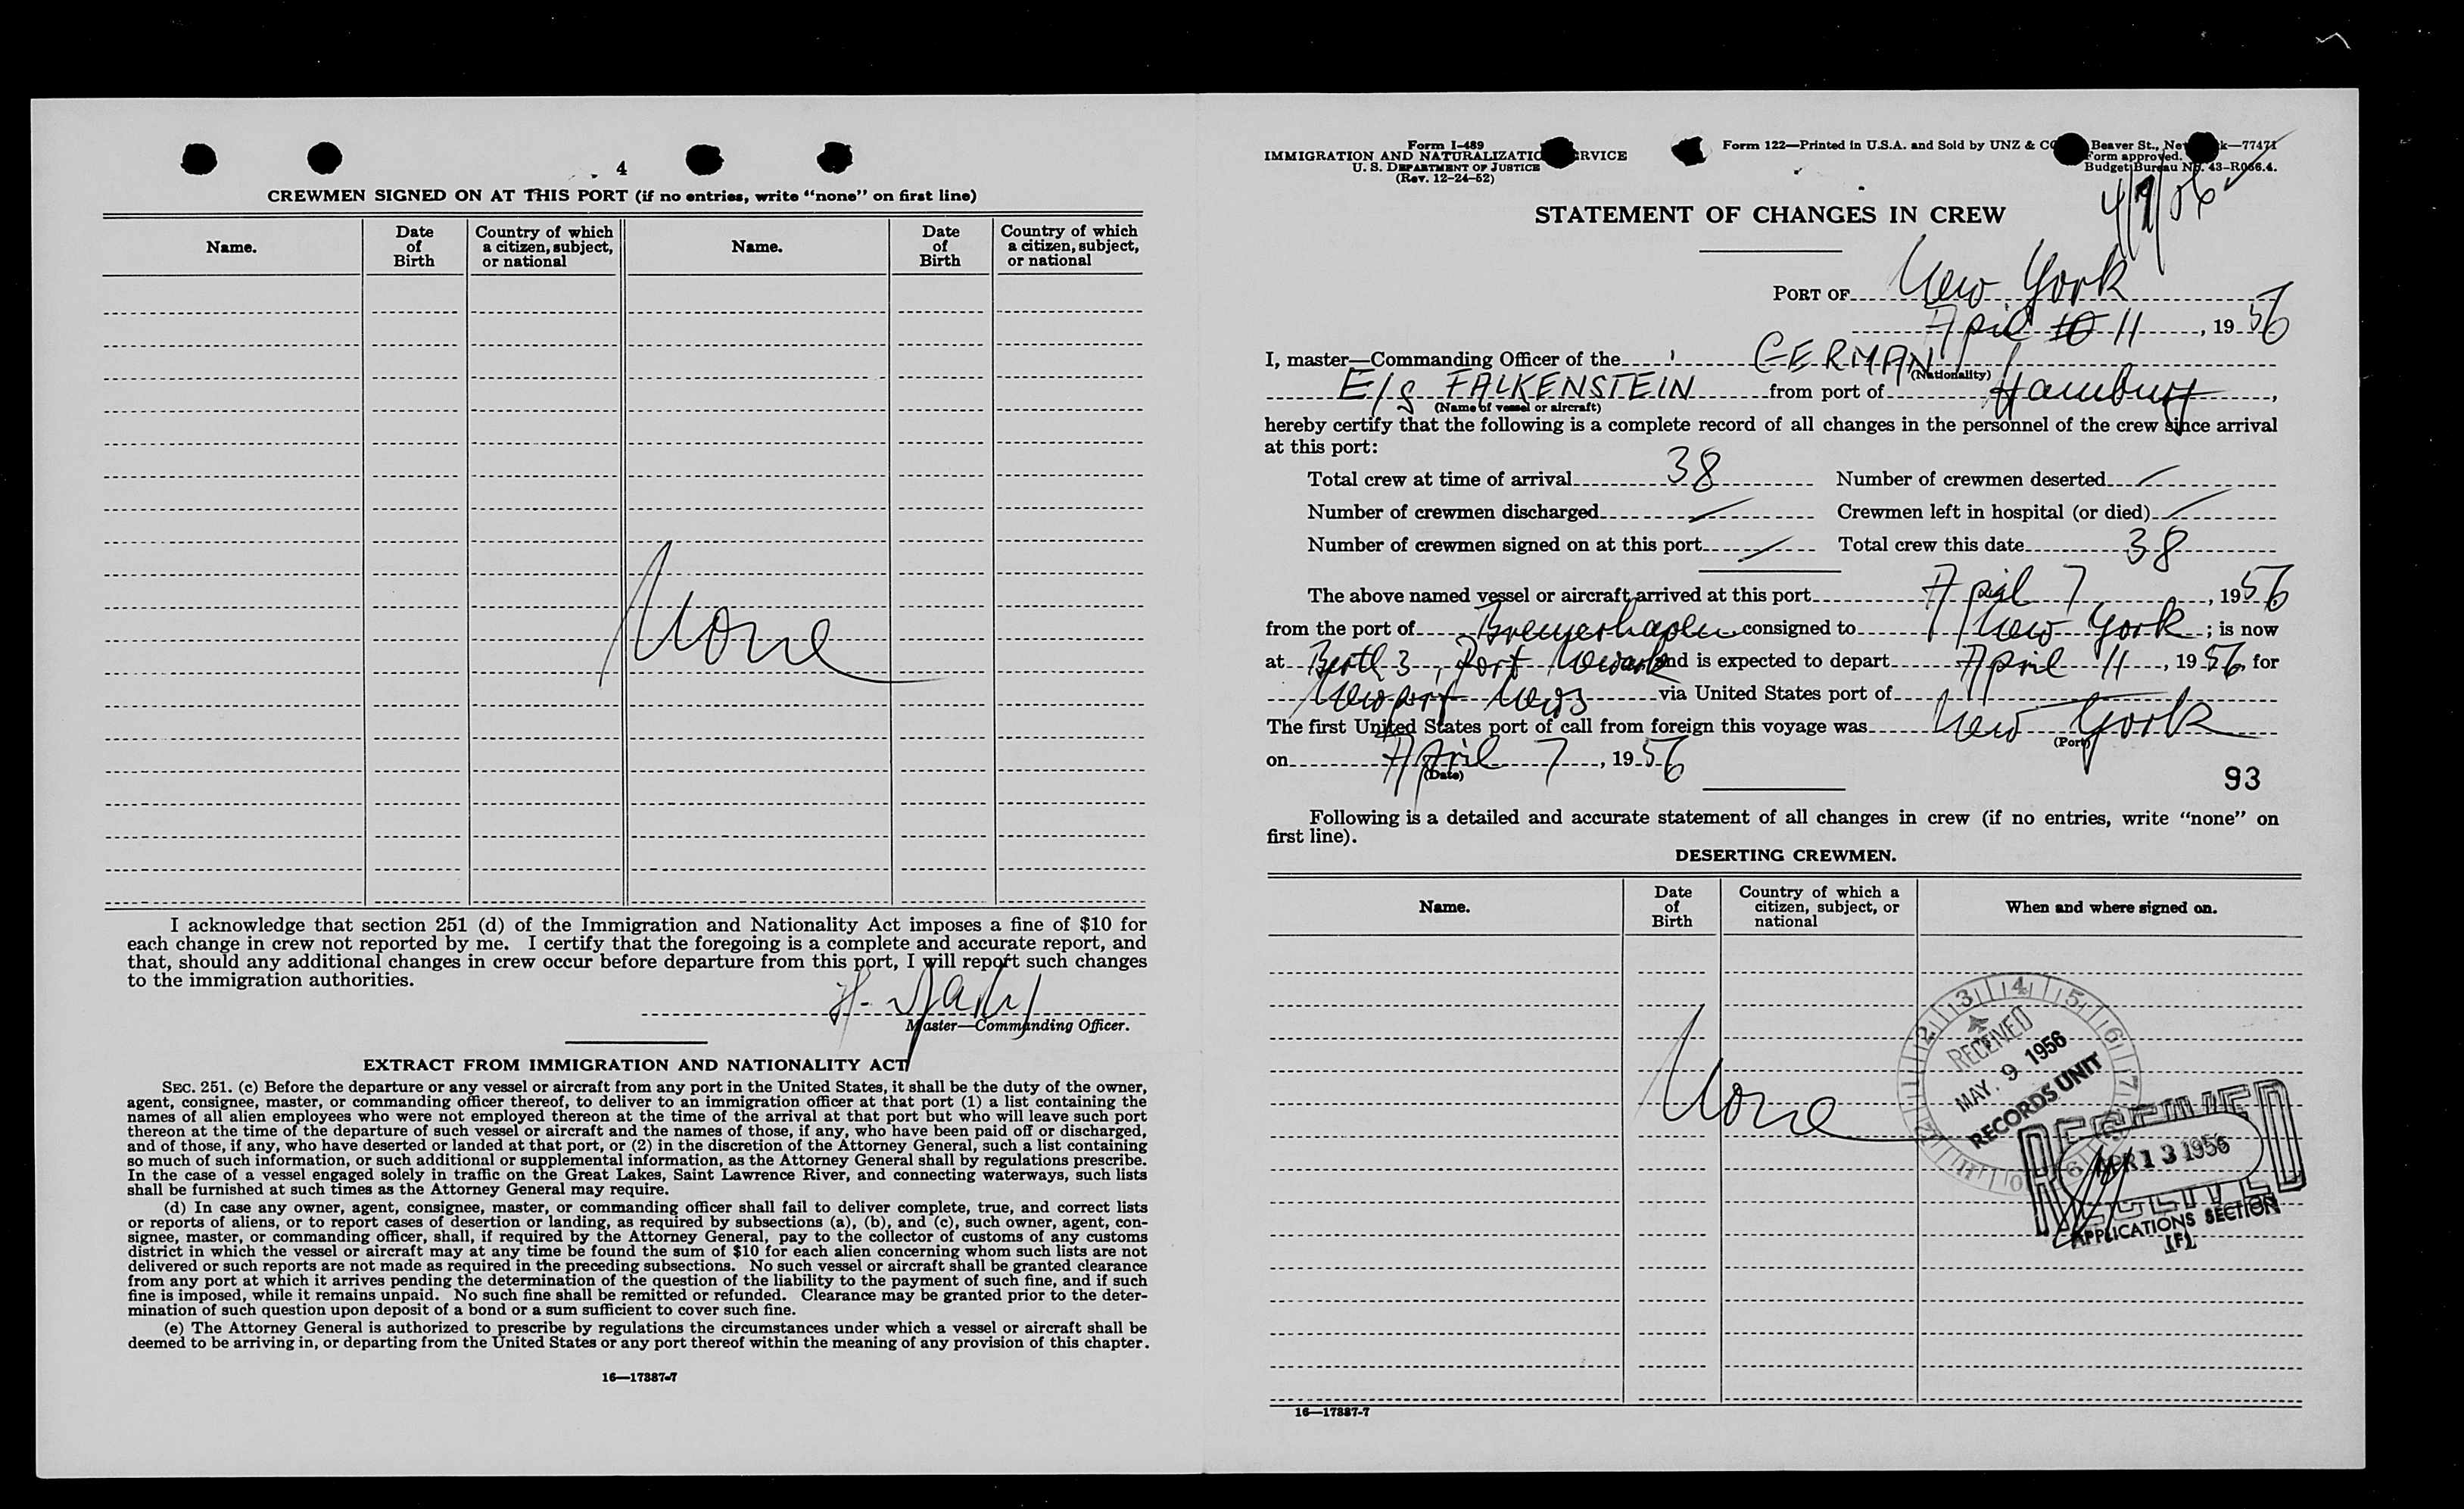 4
CREWMEN SIGNED ON AT THIS PORT (if no entries, write “none” on first line)
Name. Date of Birth Country of which a citizen, subject, or national Name. Date of Birth Country of which a citizen, subject, or national
None
I acknowledge that section 251 (d) of the Immigration and Nationality Act imposes a fine of $10 for
each change in crew not reported by me. I certify that the foregoing is a complete and accurate report, and
that, should any additional changes in crew occur before departure from this port, I will report such changes
to the immigration authorities.
H.
Master—Commanding Officer.
EXTRACT FROM IMMIGRATION AND NATIONALITY ACT
SEC. 251. (c) Before the departure or any vessel or aircraft from any port in the United States, it shall be the duty of the owner,
agent, consignee, master, or commanding officer thereof, to deliver to an immigration officer at that port (1) a list containing the
names of all alien employees who were not employed thereon at the time of the arrival at that port but who will leave such port
thereon at the time of the departure of such vessel or aircraft and the names of those, if any, who have been paid off or discharged,
and of those, if any, who have deserted or landed at that port, or (2) in the discretion of the Attorney General, such a list containing
so much of such information, or such additional or supplemental information, as the Attorney General shall by regulations prescribe.
In the case of a vessel engaged solely in traffic on the Great Lakes, Saint Lawrence River, and connecting waterways, such lists
shall be furnished at such times as the Attorney General may require.
(d) In case any owner, agent, consignee, master, or commanding officer shall fail to deliver complete, true, and correct lists
or reports of aliens, or to report cases of desertion or landing, as required by subsections (a), (b), and (c), such owner, agent, con-
signee, master, or commanding officer, shall, if required by the Attorney General, pay to the collector of customs of any customs
district in which the vessel or aircraft may at any time be found the sum of $10 for each alien concerning whom such lists are not
delivered or such reports are not made as required in the preceding subsections. No such vessel or aircraft shall be granted clearance
from any port at which it arrives pending the determination of the question of the liability to the payment of such fine, and if such
fine is imposed, while it remains unpaid. No such fine shall be remitted or refunded. Clearance may be granted prior to the deter-
mination of such question upon deposit of a bond or a sum sufficient to cover such fine.
(e) The Attorney General is authorized to prescribe by regulations the circumstances under which a vessel or aircraft shall be
deemed to be arriving in, or departing from the United States or any port thereof within the meaning of any provision of this chapter.
16—17387-7
Form I-489
IMMIGRATION AND NATURALIZATIO RVICE
U. S. DEPARTMENT OF JUSTICE
(Rev. 12-24-52)
Form 122—Printed in U.S.A. and Sold by UNZ & CO Beaver St., Ne k—77471
Form approved.
Budget Bureau No. 43-R086.4.
4/7/56
STATEMENT OF CHANGES IN CREW
PORT OF New York
April 10 11, 1956
I, master—Commanding Officer of the GERMAN
(Nationality)
E/S FALKENSTEIN from port of Hamburg,
(Name of vessel or aircraft)
hereby certify that the following is a complete record of all changes in the personnel of the crew since arrival
at this port:
Total crew at time of arrival 38 Number of crewmen deserted —
Number of crewmen discharged — Crewmen left in hospital (or died) —
Number of crewmen signed on at this port — Total crew this date 38
The above named vessel or aircraft arrived at this port April 7, 1956
from the port of Bremerhaven consigned to New York; is now
at Berth 3, Port Newark and is expected to depart April 11, 1956 for
Newport News via United States port of
The first United States port of call from foreign this voyage was New York
(Port)
on April 7, 1956
(Date)
93
Following is a detailed and accurate statement of all changes in crew (if no entries, write “none” on
first line).
DESERTING CREWMEN.
Name. Date of Birth Country of which a citizen, subject, or national When and where signed on.
None
RECEIVED
MAY. 9 1956
RECORDS UNIT
RECEIVED
APR 13 1956
APPLICATIONS SECTION
(F)
16—17387-7